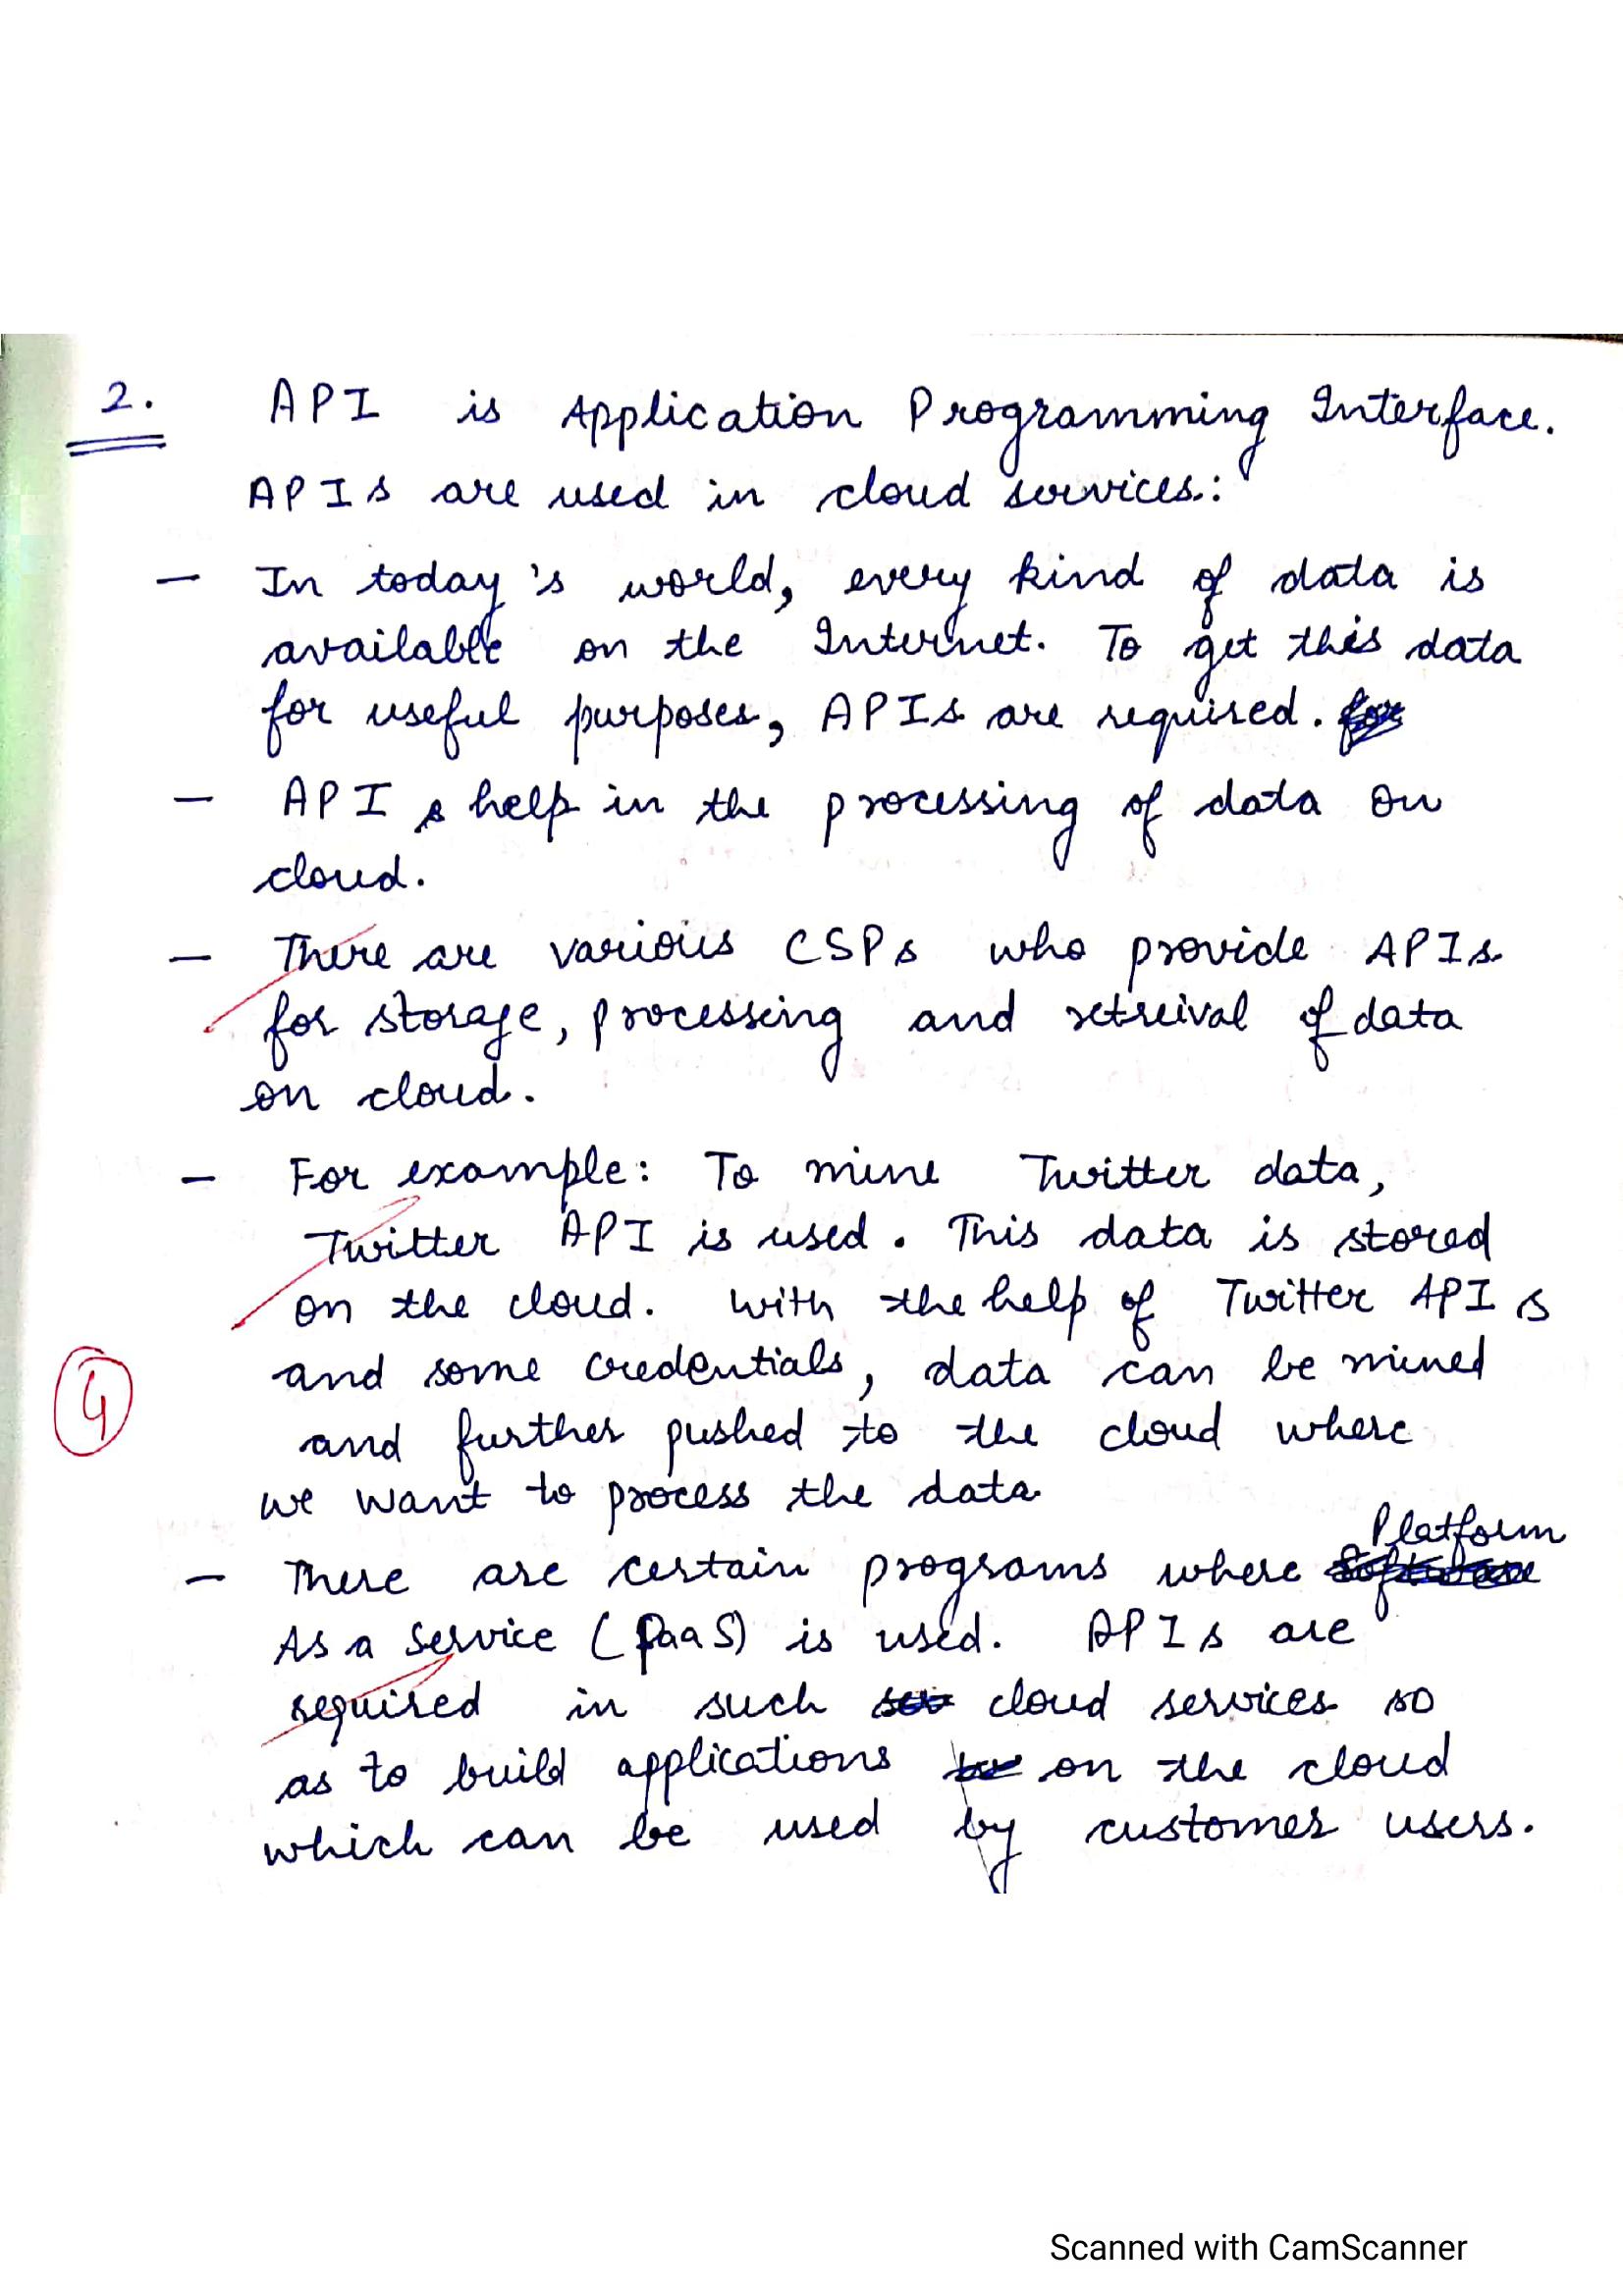 2. API is Application Programming Interface.
APIs are used in cloud services:
- In today's world, every kind of data is
available on the Internet. To get this data
for useful purposes, APIs are required.
- APIs help in the processing of data on
cloud.
- There are various CSPs who provide APIs
for storage, processing and retreival of data
on cloud.
- For example: To mine Twitter data,
Twitter API is used. This data is stored
on the cloud. With the help of Twitter APIs
and some credentials, data can be mined
4
and further pushed to the cloud where
we want to process the data
Platform
- There are certain programs where
As a Service (PaaS) is used. APIs are
required in such cloud services so
as to build applications on the cloud
which can be used by customer users.
Scanned with CamScanner